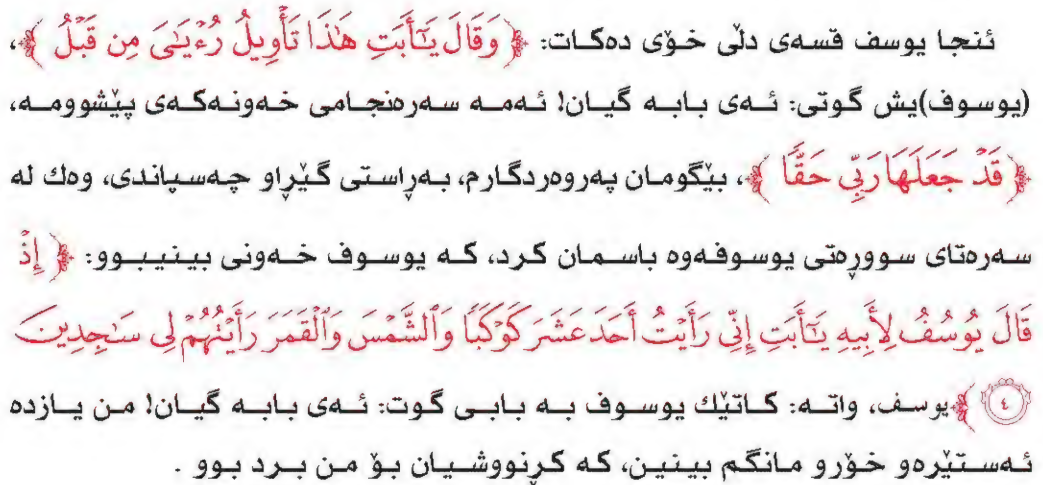 ئنجا یوسف قسەی دڵی خۆی دەکات: ﴿ وَقَالَ يَـٰٓأَبَتِ هَـٰذَا تَأْوِيلُ رُءْيَـٰىَ مِن قَبْلُ ﴾،
(یوسوف)یش گوتی: ئەی بابە گیان! ئەمە سەرەنجامی خەونەکەی پێشوومە،
﴿ قَدْ جَعَلَهَا رَبِّى حَقًّا ﴾، بێگومان پەروەردگارم، بەڕاستی گێڕاو چەسپاندی، وەك لە
سەرەتای سوورەتی یوسوفەوە باسمان کرد، کە یوسوف خەونی بینیبوو: ﴿ إِذْ
قَالَ يُوسُفُ لِأَبِيهِ يَـٰٓأَبَتِ إِنِّى رَأَيْتُ أَحَدَ عَشَرَ كَوْكَبًا وَٱلشَّمْسَ وَٱلْقَمَرَ رَأَيْتُهُمْ لِى سَـٰجِدِينَ
٤ ﴾یوسف، واتە: کاتێك یوسوف بە بابی گوت: ئەی بابە گیان! من یازدە
ئەستێرەو خۆرو مانگم بینین، کە کڕنووشیان بۆ من برد بوو .